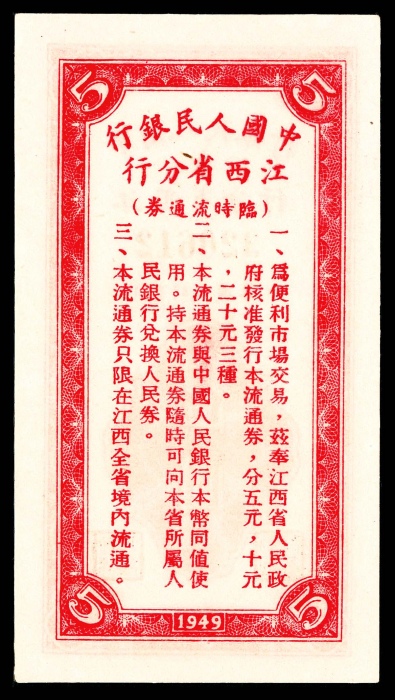 5 5
中國人民銀行
江西省分行
(臨時流通券)
一、爲便利市場交易，茲奉江西省人民政
府核准發行本流通券，分五元，十元
，二十元三種。
二、本流通券與中國人民銀行本幣同值使
用。持本流通券隨時可向本省所屬人
民銀行兌換人民券。
三、本流通券只限在江西全省境內流通。
5 1949 5